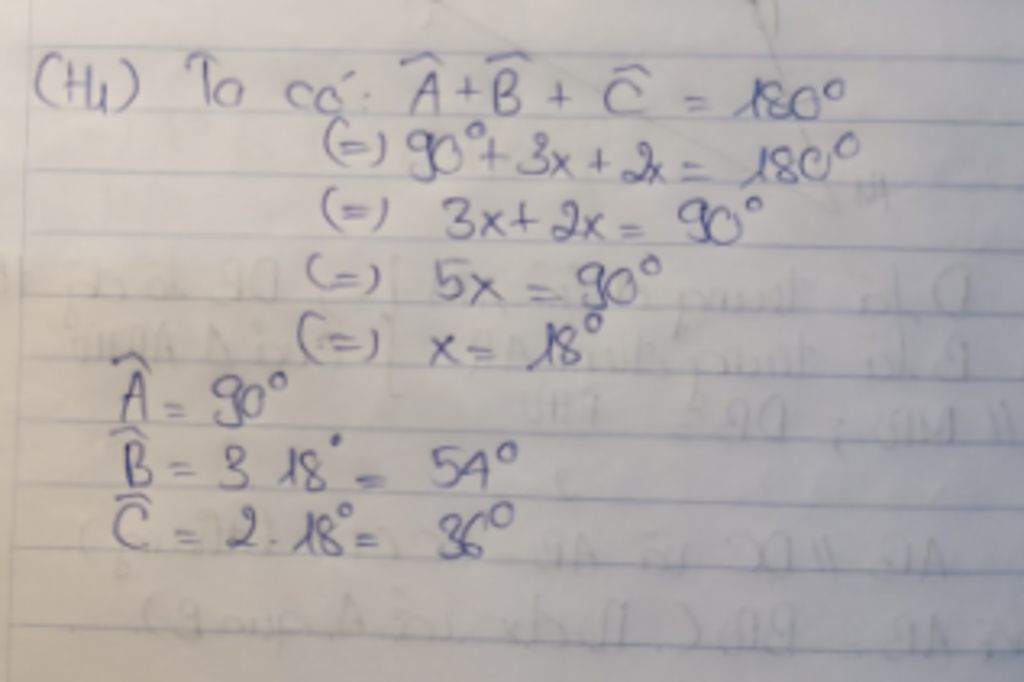 (H1) Ta có: Â + B̂ + Ĉ = 180°
(=) 90° + 3x + 2x = 180°
(=) 3x + 2x = 90°
(=) 5x = 90°
(=) x = 18°
Â = 90°
B̂ = 3 18° = 54°
Ĉ = 2. 18° = 36°